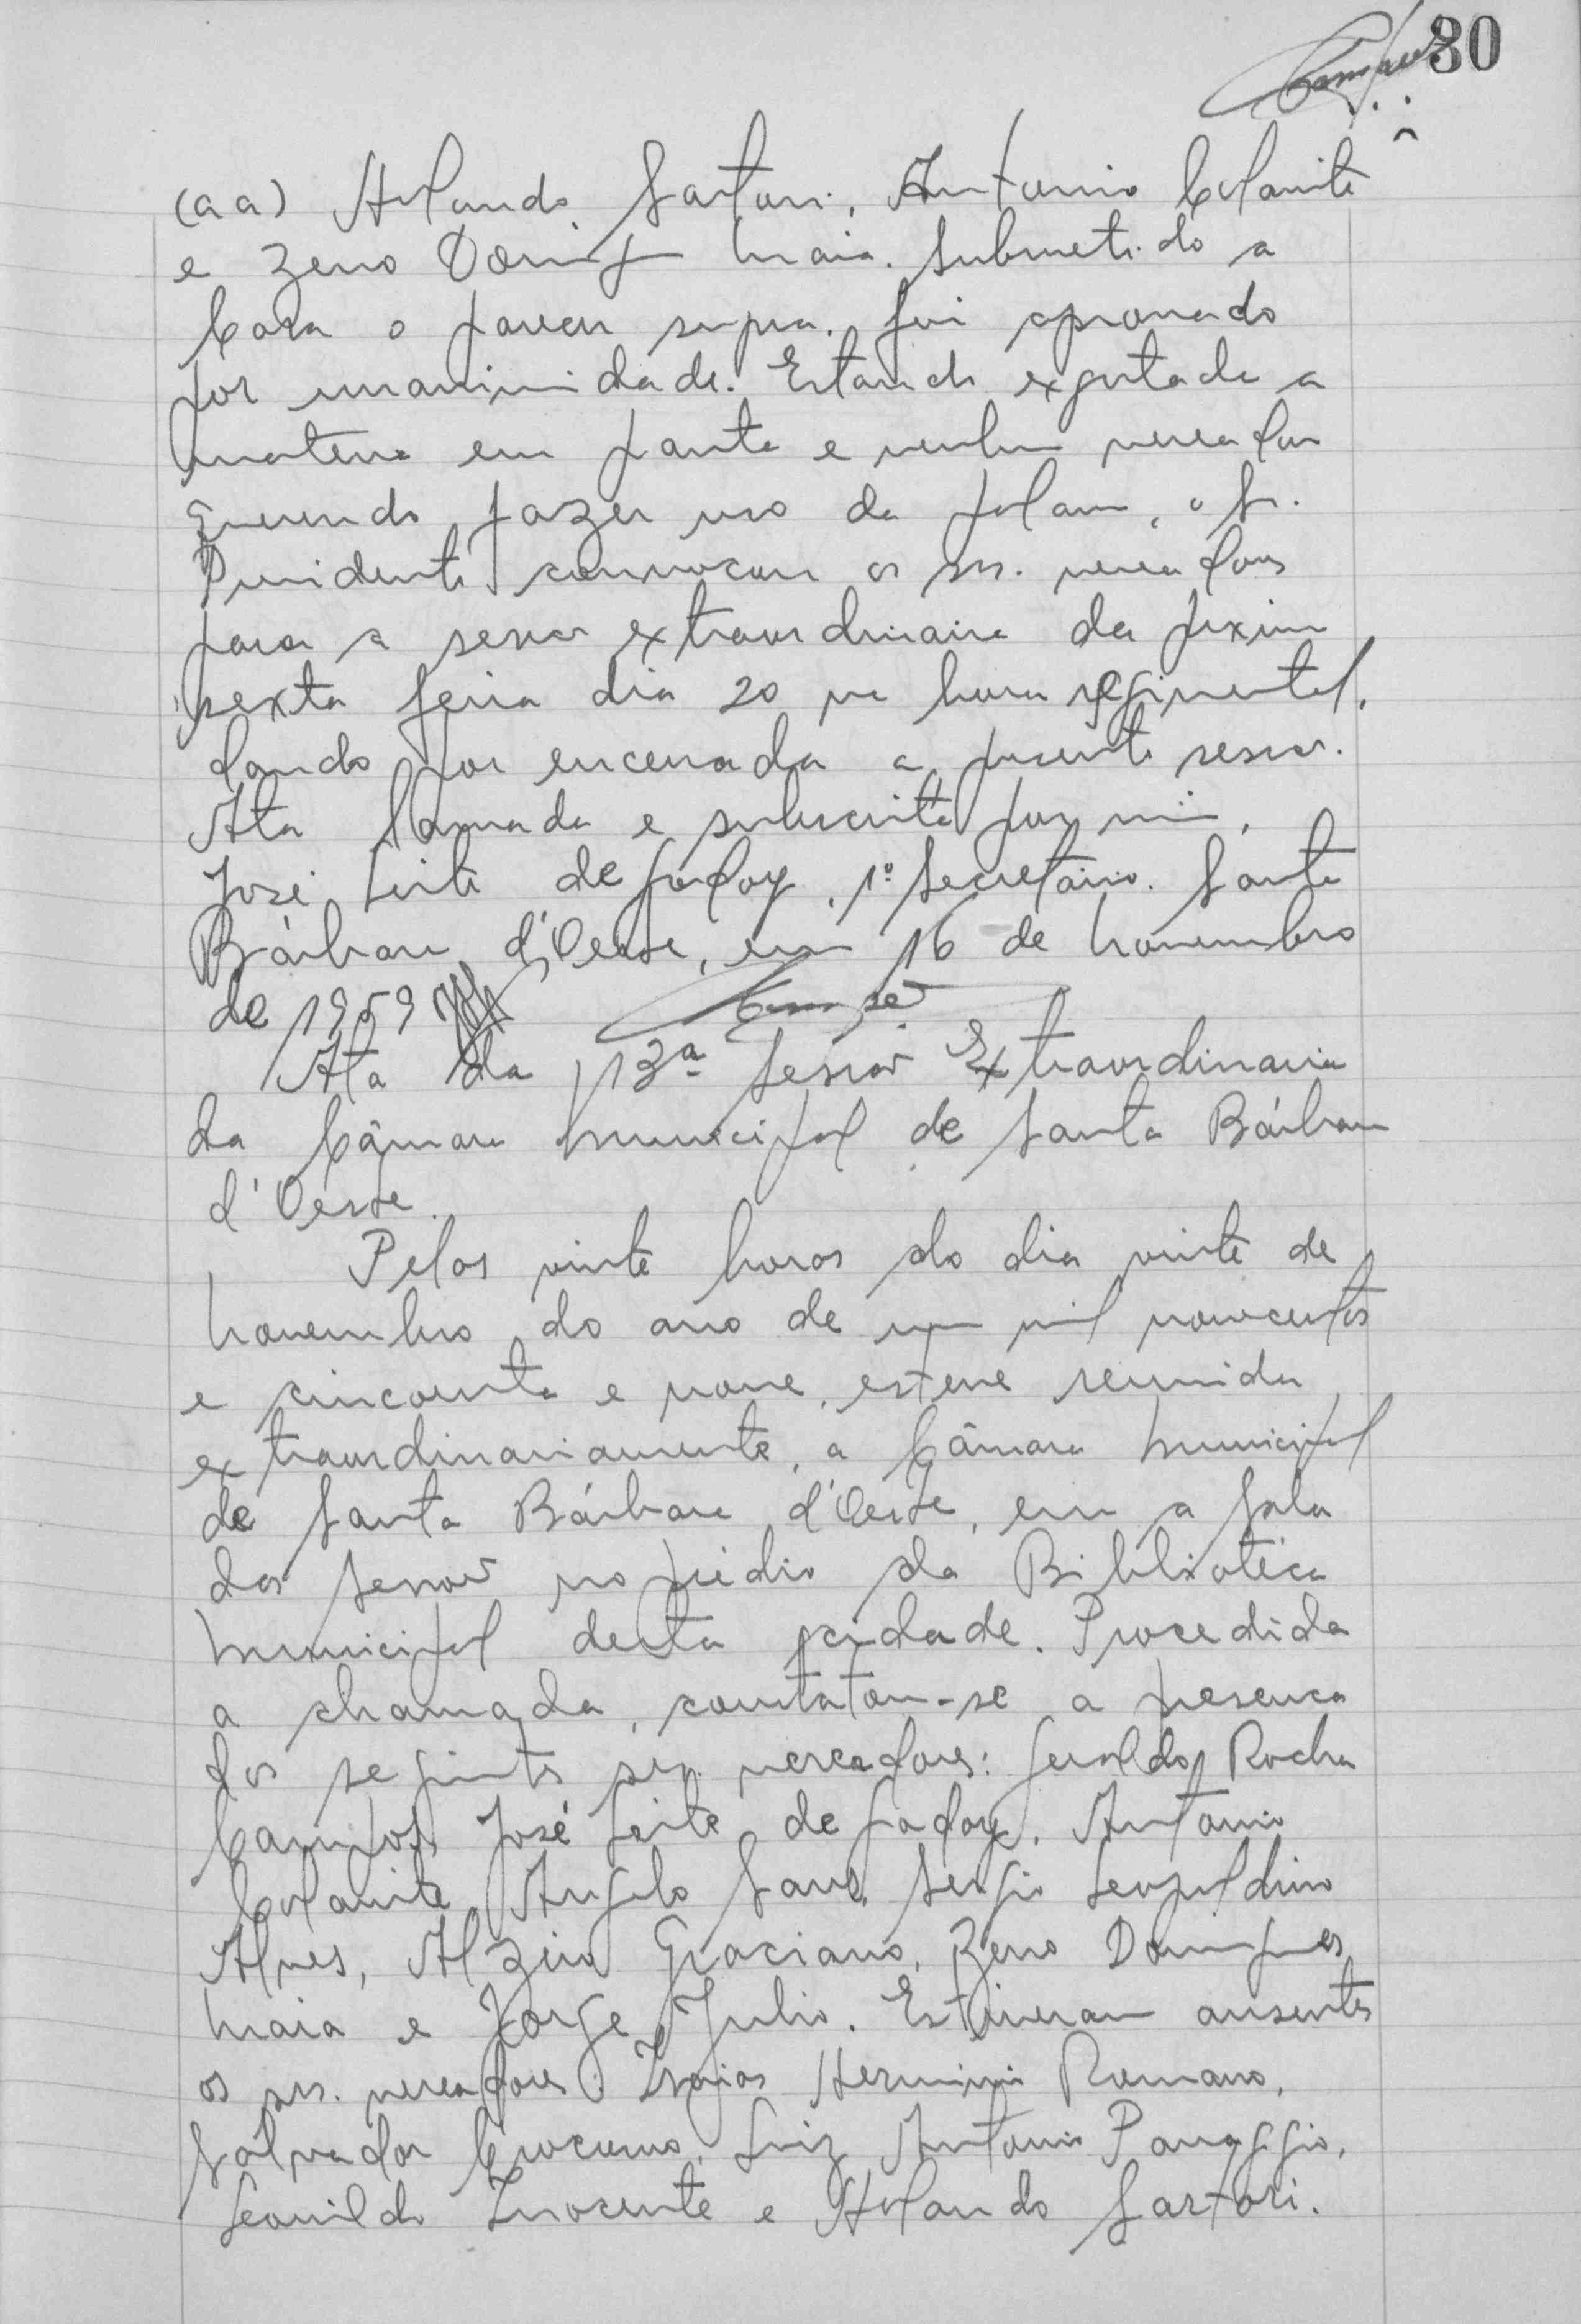 30
(aa) Holando Sartori, Antonio Colamite
e Zeno Doming Maia. Submetido a
Casa o parecer supra. foi aprovado
por unanimidade. Estando exgotada a
materia em pauta e nenhum vereador
querendo fazer uso da palavra, o Sr.
Presidente convocou os srs. vereadores
para a sessão extraordinaria da proxima
sexta feira dia 20 na hora regimental,
dando por encerrada a presente sessão.
Ata lavrada e subscrita por mim,
José Leite de Godoy, 1º Secretário. Santa
Bárbara d'Oeste, em 16 de Novembro
de 1959
Ata da 13ª Sessão Extraordinaria
da Câmara Municipal de Santa Bárbara
d'Oeste.
Pelas vinte horas do dia vinte de
Novembro do ano de um mil novecentos
e cincoenta e nove, esteve reunida
extraordinariamente, a Câmara Municipal
de Santa Bárbara d'Oeste, em a sala
das Sessões no prédio da Biblioteca
Municipal desta cidade. Procedida
a chamada, constatou-se a presença
dos seguintes srs. vereadores: Geraldo Rocha
Campos, José Leite de Godoy, Antonio
Colamite, Angelo Sans, Sergio Leopoldino
Alves, Alziro Graciano, Zeno Domingues
Maia e Jorge Julio. Estiveram ausentes
os srs. vereadores: Izaias Herminio Romano,
Salvador Crocomo, Luiz Antonio Panaggio,
Leonildo Inocente e Holando Sartori.